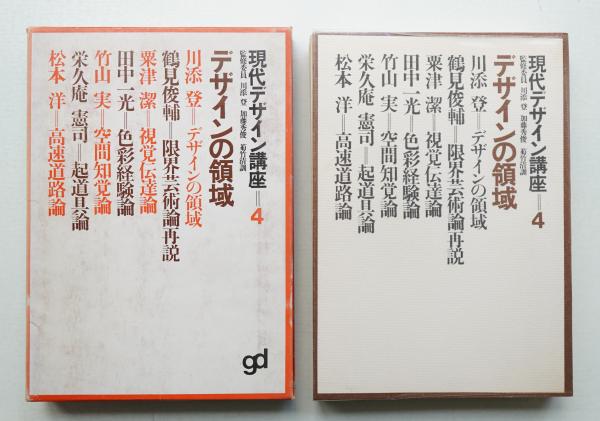 現代デザイン講座=4
監修委員 川添 登 加藤秀俊 菊竹清訓
デザインの領域
川添 登=デザインの領域
鶴見俊輔=限界芸術論再説
粟津 潔=視覚伝達論
田中一光=色彩経験論
竹山 実=空間知覚論
栄久庵 憲司=起道具論
松本 洋=高速道路論
gd
現代デザイン講座=4
監修委員 川添 登 加藤秀俊 菊竹清訓
デザインの領域
川添 登=デザインの領域
鶴見俊輔=限界芸術論再説
粟津 潔=視覚伝達論
田中一光=色彩経験論
竹山 実=空間知覚論
栄久庵 憲司=起道具論
松本 洋=高速道路論